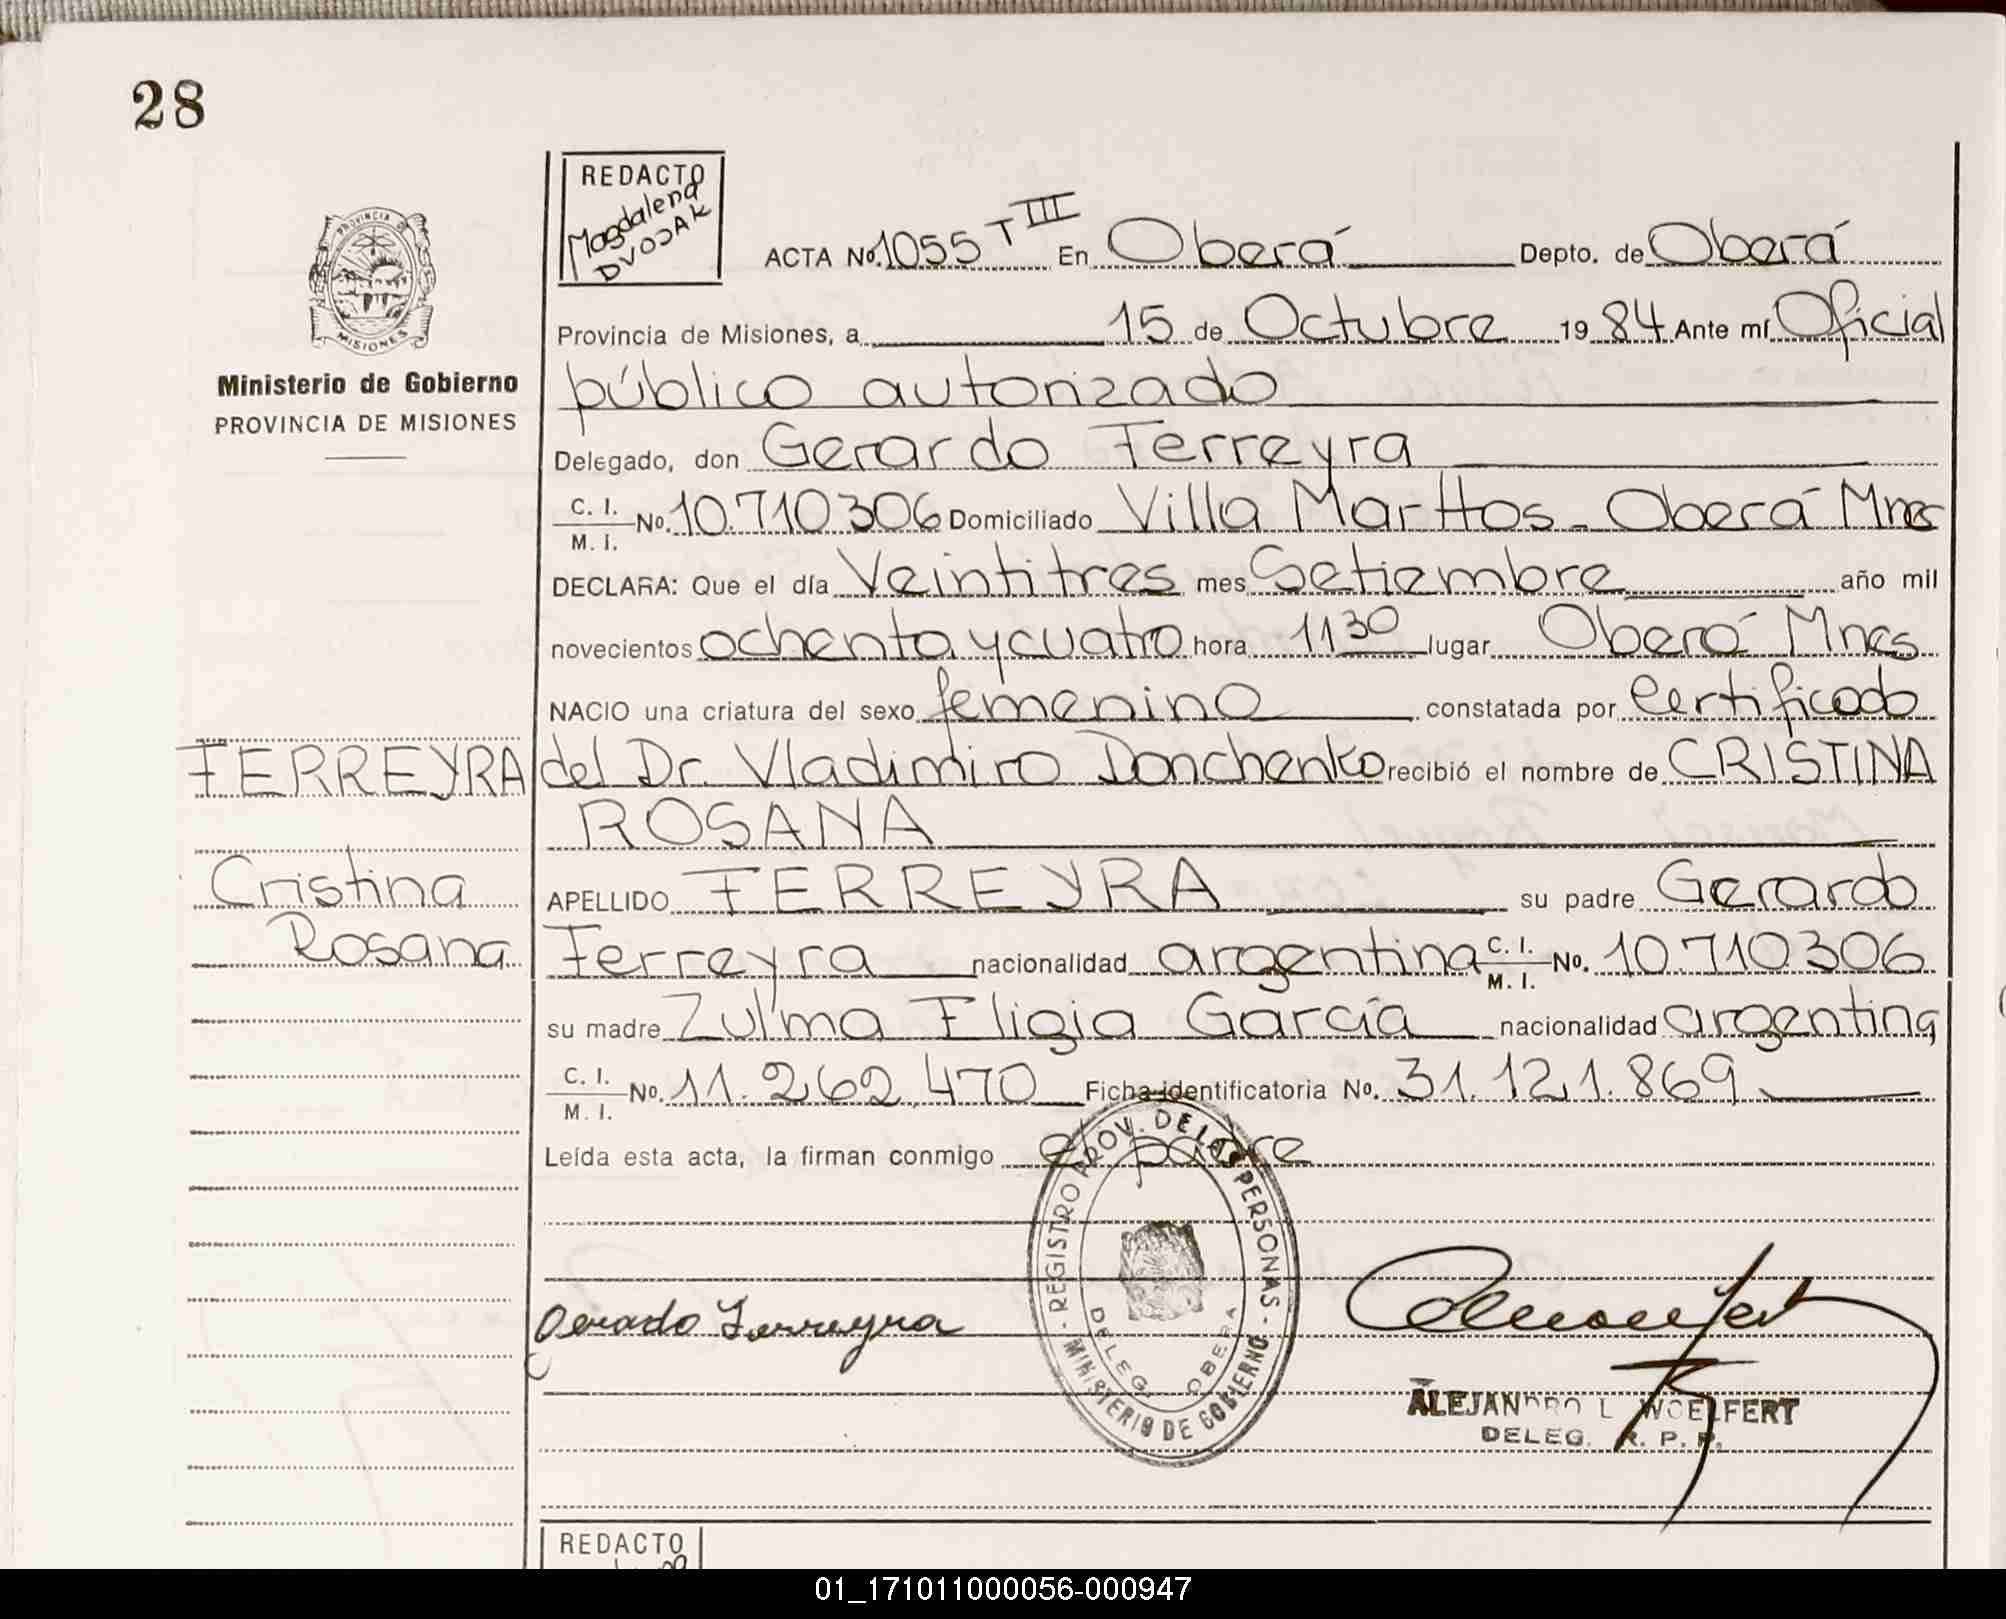 28
REDACTO
Magdalena
DVOJAK
PROVINCIA DE
MISIONES
Ministerio de Gobierno
PROVINCIA DE MISIONES
ACTA No. 1055 T III En Oberá Depto. de Oberá
Provincia de Misiones, a 15 de Octubre 1984 Ante mí Oficial
público autorizado
Delegado, don Gerardo Ferreyra
C. I. M. I. No. 10.710306 Domiciliado Villa Marttos - Oberá Mnes
DECLARA: Que el día Veintitres mes Setiembre año mil
novecientos ochenta y cuatro hora 11 30 lugar Oberá Mnes
NACIO una criatura del sexo femenino constatada por Certificado
FERREYRA del Dr. Vladimiro Donchenko recibió el nombre de CRISTINA
ROSANA
Cristina
Rosana
APELLIDO FERREYRA su padre Gerardo
Ferreyra nacionalidad argentina C. I. M. I. No. 10.710.306
su madre Zulma Eligia García nacionalidad argentina
C. I. M. I. No. 11.262.470 Ficha identificatoria No. 31.121.869
Leída esta acta, la firman conmigo el padre
REGISTRO PROV. DE LAS PERSONAS - MINISTERIO DE GOBIERNO -
DELEG. OBERA
Gerardo Ferreyra
ALEJANDRO L WOELFERT
DELEG. R. P. P.
REDACTO
01_171011000056-000947